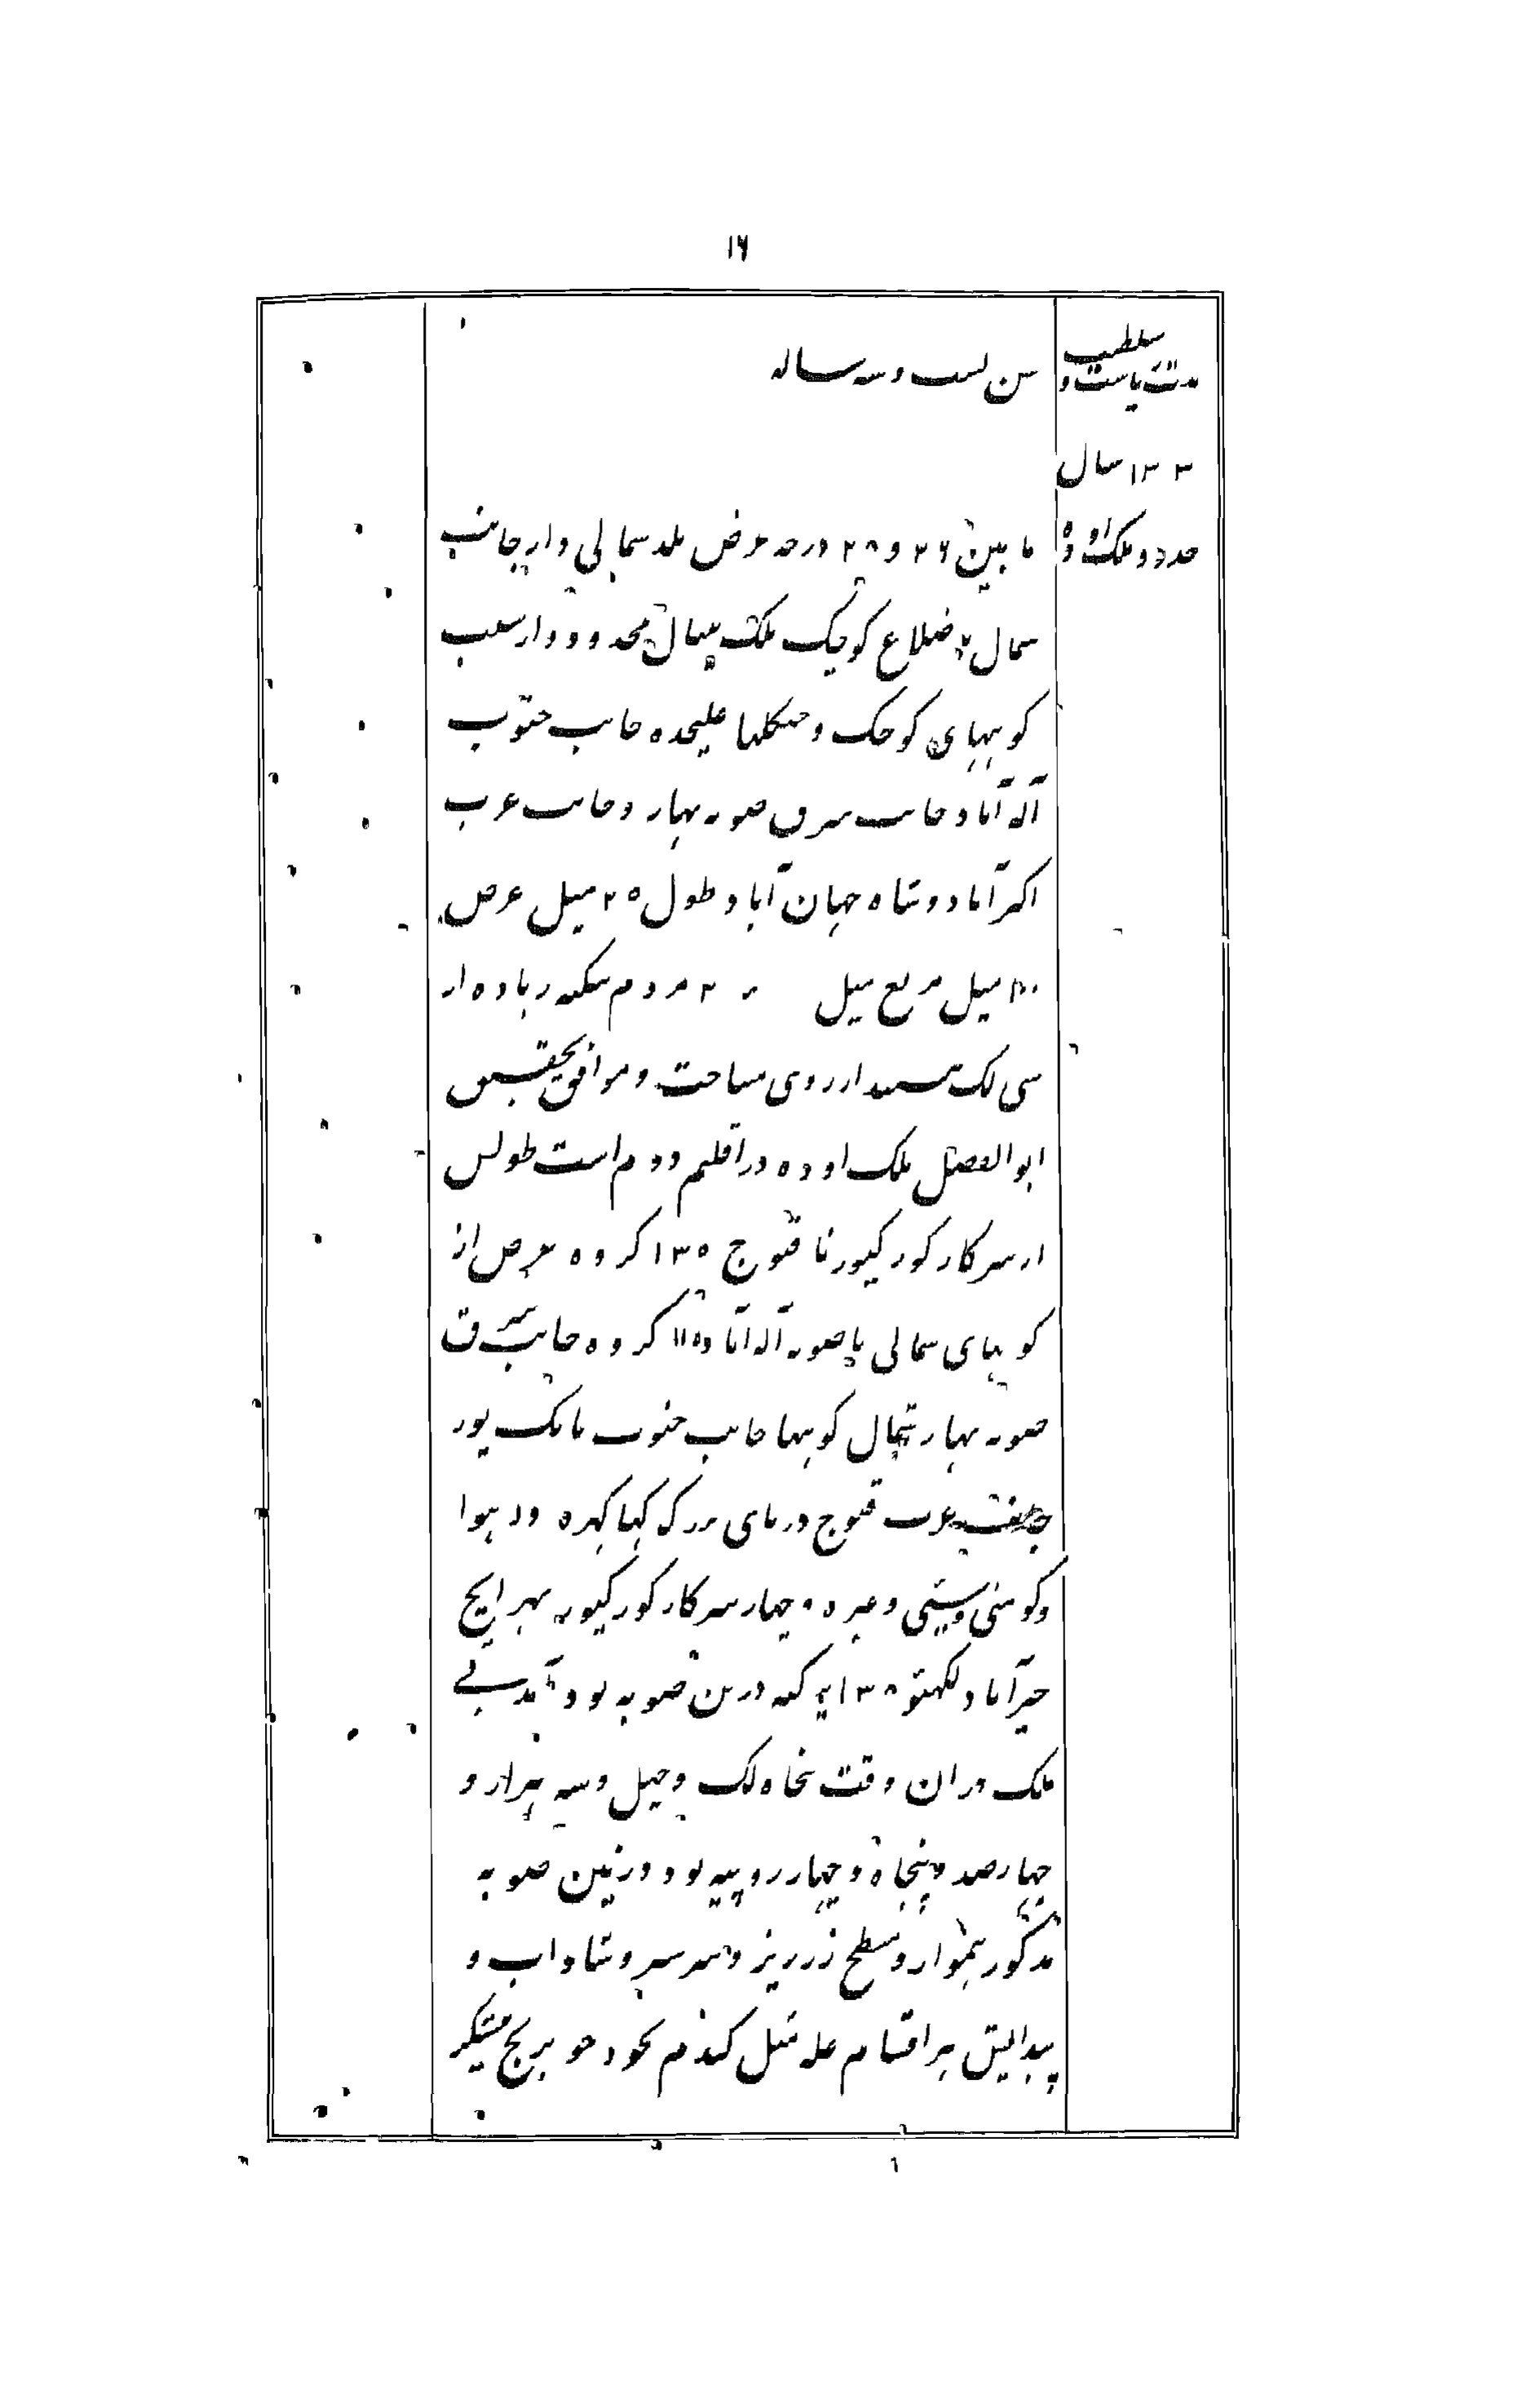 ۱۶
مدت ریاست و سلطنت
سن بست و سه ساله
۱۳۳ سال
حدود ملک اوده
ما بین ۲۶ و ۲۸ درجه عرض بلد شمالی و از جانب
شمال باضلاع کوچک ملک نیپال محدود و از سبب
کوههای کوچک و جنگلها علیحده جانب جنوب
آله آباد جانب شرق صوبه بهار و جانب غرب
اکبرآباد و شاه جهان آباد طول ۲۵ میل عرض
میل مربع میل مردم سکنه زیاده از
سی لک از روی مساحت و موافق تحقیق
ابوالفضل ملک اوده در اقلیم دوم است طولش
از سرکار گورکپور تا قنوج ۱۳۵ کروه عرض از
کوههای شمالی با صوبه آله آباد ۱۱۵ کروه جانب شرق
صوبه بهار شمال کوهها جانب جنوب مانک پور
غرب قنوج دریای بزرگ کهاکهره و
و گومتی و سئی و غیره و چهار سرکار گورکپور بهرایچ
خیرآباد لکهنؤ ۱۳۸ پرگنه درین صوبه بود آمدنی
ملک در ان وقت پنجاه لک و چهل و سه هزار و
چهارصد و پنجاه و چهار روپیه بود و زمین صوبه
مذکور هموار و مسطح زرریز و سرسبز و شاداب و
پیدایش هر اقسام غله مثل گندم نخود جو برنج نیشکر